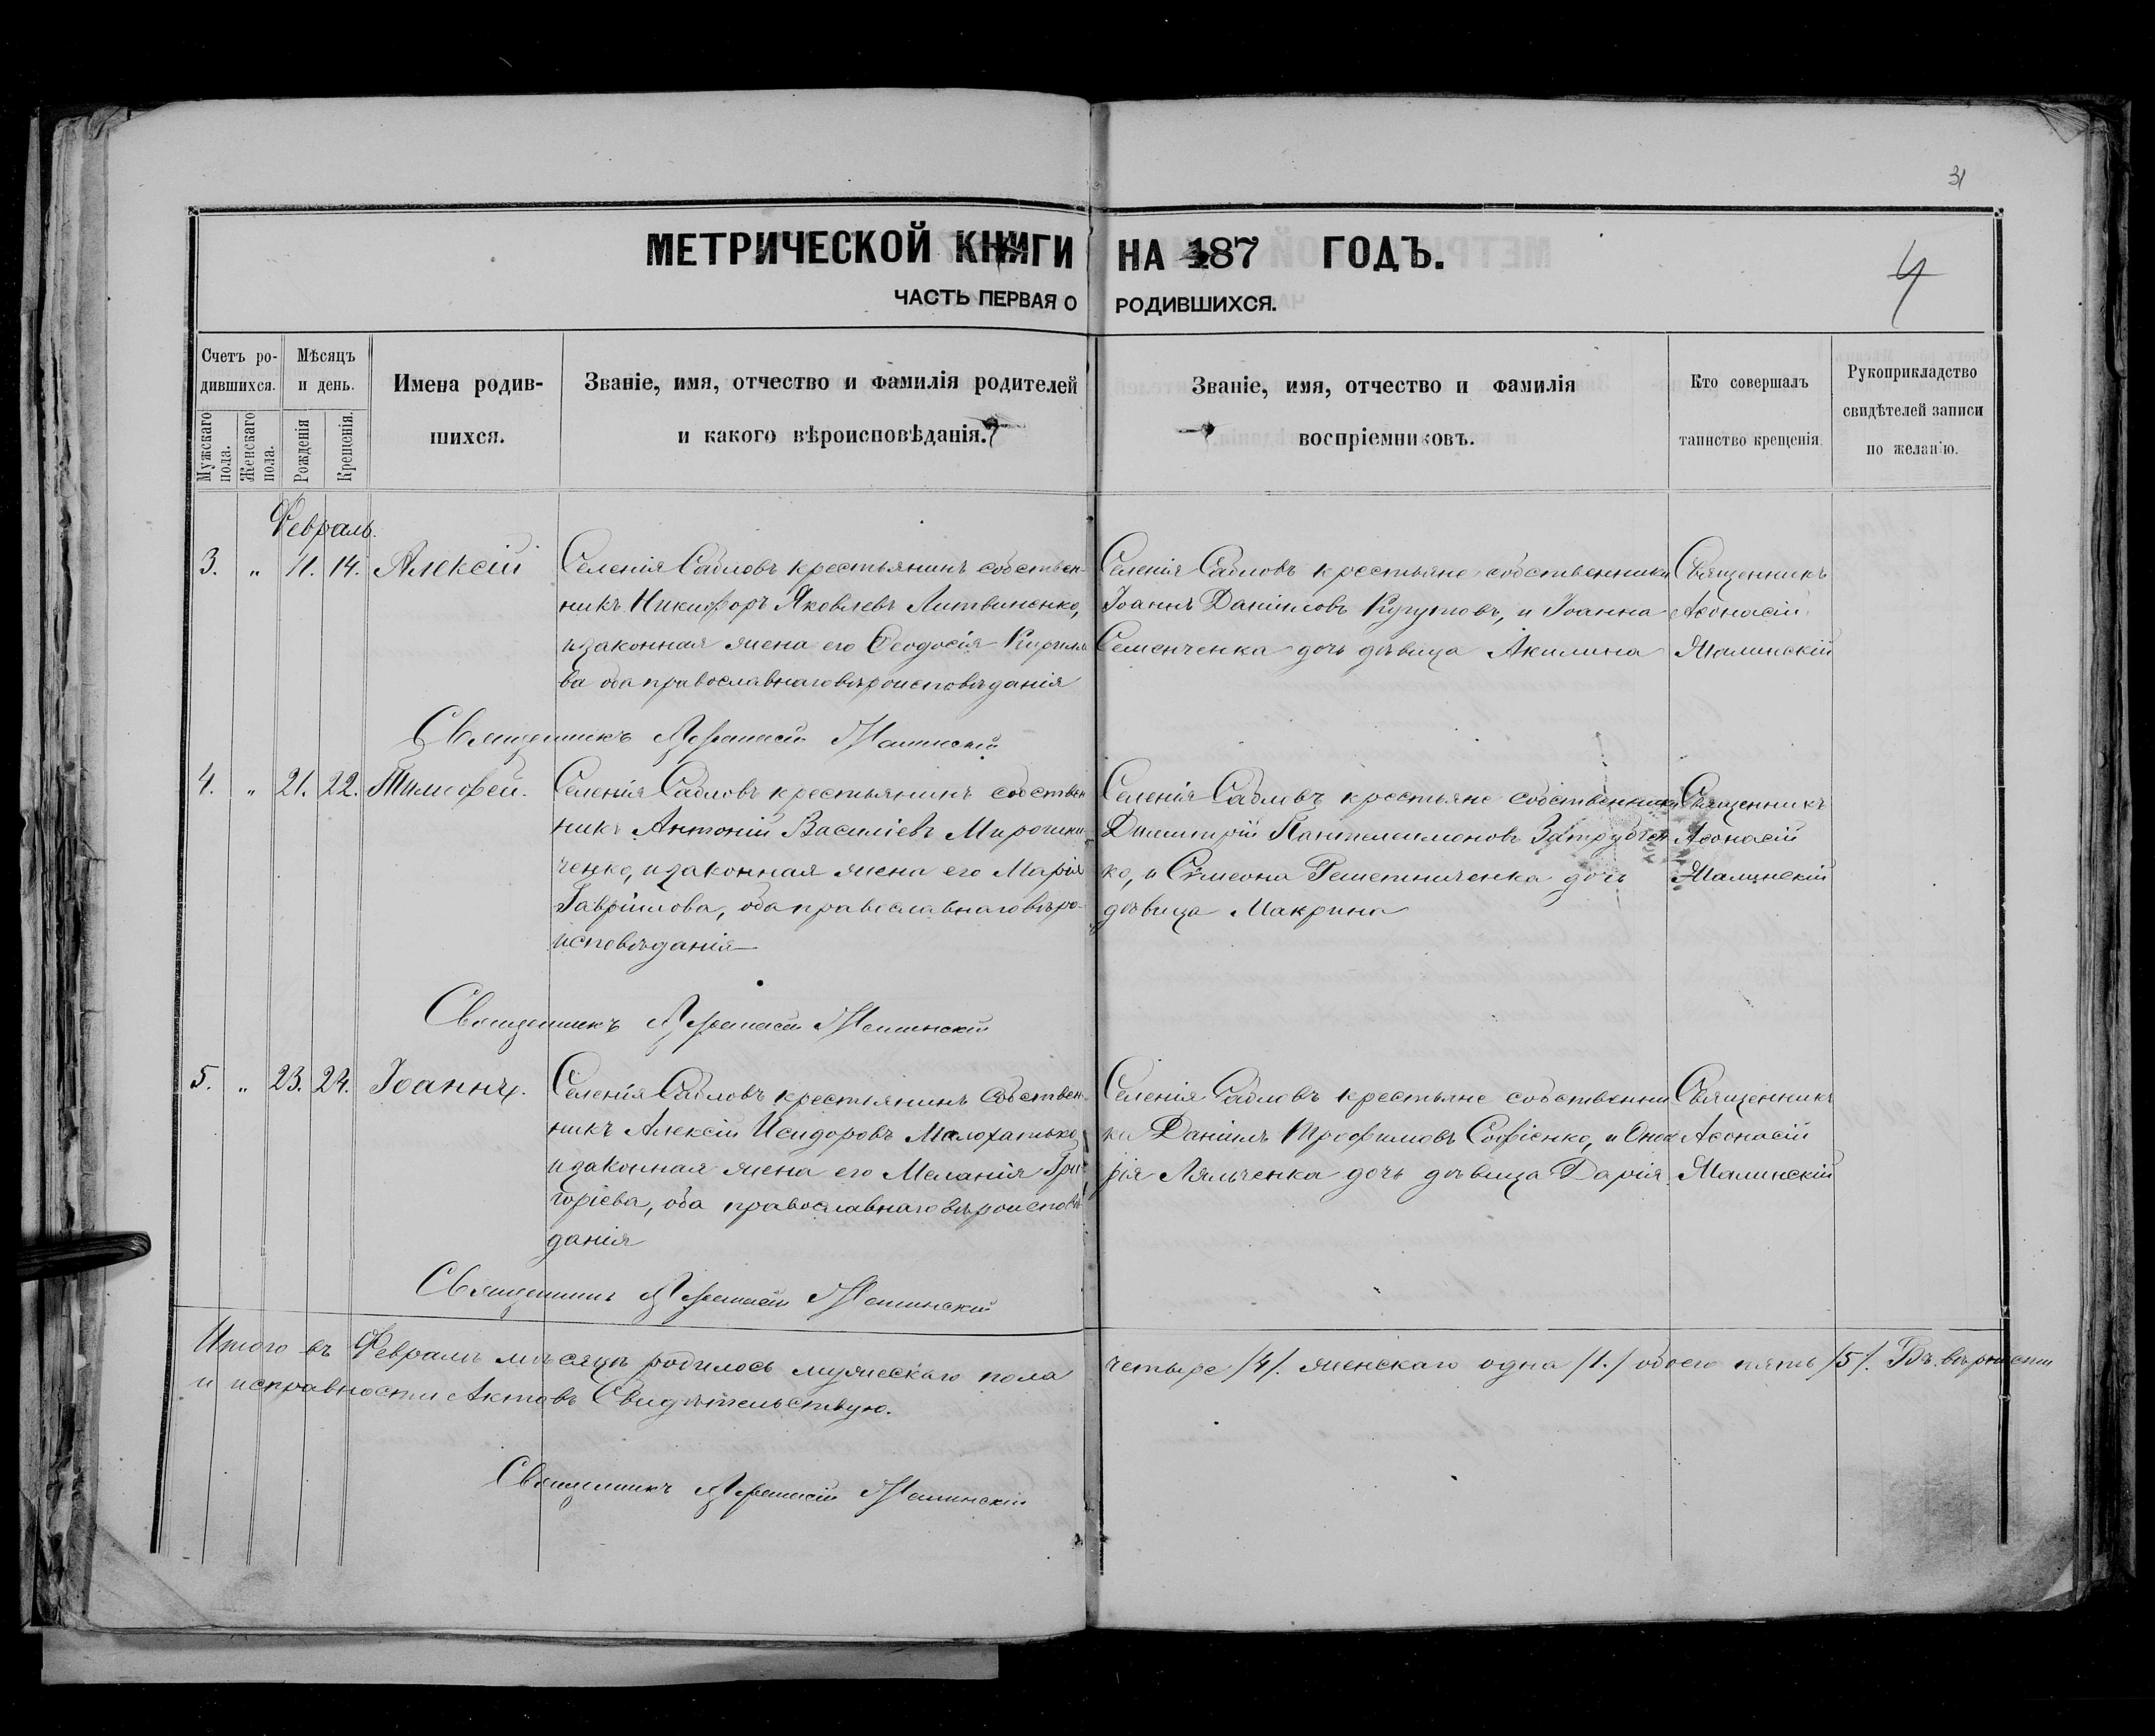 31
МЕТРИЧЕСКОЙ КНИГИ НА 187 ГОДЪ.
4
ЧАСТЬ ПЕРВАЯ О РОДИВШИХСЯ.
Счетъ ро-
дившихся.
Мужскаго пола.
Женскаго пола.
Мѣсяцъ
и день.
Рожденія
Крещенія.
Имена родив-
шихся.
Званіе, имя, отчество и фамилія родителей
и какого вѣроисповѣданія.
Званіе, имя, отчество и фамилія
воспріемниковъ.
Кто совершалъ
таинство крещенія.
Рукоприкладство
свидѣтелей записи
по желанію.
Февраль.
3. " 11. 14. Алексій
Селенія Садловъ крестьянинъ собствен-
никъ Никифоръ Яковлевъ Литвиненко,
и законная жена его Ѳеодосія Кирило
ва оба православнаго вѣроисповѣданія
Селенія Садловъ крестьяне собственники
Іоаннъ Даніиловъ, и Іоанна
Семенченка дочь дѣвица Акилина
Священникъ
Аѳонасій
Малинскій
Священникъ Афанасій Малинскій
4. " 21. 22. Тимофей.
Селенія Садловъ крестьянинъ собствен
никъ Антоній Василіевъ Мирошни
ченко, и законная жена его Марія
Гавріилова, оба православнаго вѣро-
исповѣданія
Селенія Садловъ крестьяне собственники
Димитрій Пантелеимоновъ Затрубчен
ко, и Сѵмеона Решетниченка дочь
дѣвица Макрина
Священникъ
Аѳонасій
Малинскій
Священникъ Афанасій Малинскій
5. " 23. 24. Іоаннъ.
Селенія Садловъ крестьянинъ собствен-
никъ Алексій Исидоровъ Малохатько
и законная жена его Меланія Гри-
горіева, оба православнаго вѣроисповѣ
данія
Селенія Садловъ крестьяне собственни
ки Даніилъ Трофимовъ Софіенко, и
Ляльченка дочь дѣвица Дарія.
Священникъ
Аѳонасій
Малинскій
Священникъ Афанасій Малинскій
Итого въ Февралѣ мѣсяцѣ родилось мужескаго пола четыре /4/. женскаго одна /1./ обоего пять /5/. Въ вѣрности
и исправности Актовъ Свидѣтельствую.
Священникъ Афанасій Малинскій